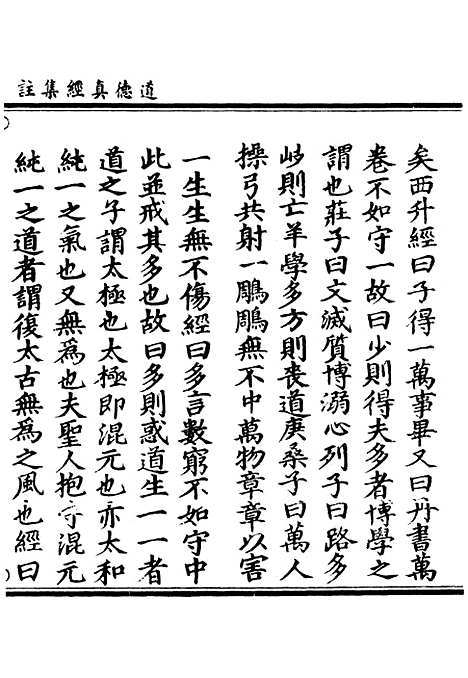 道德真經集註
矣西升經曰子得一萬事畢又曰丹書萬
卷不如守一故曰少則得夫多者博學之
謂也莊子曰文滅質博溺心列子曰路多
歧則亡羊學多方則喪道庚桑子曰萬人
操弓共射一鵰鵰無不中萬物章章以害
一生生無不傷經曰多言數窮不如守中
此並戒其多也故曰多則惑道生一一者
道之子謂太極也太極即混元也亦太和
純一之氣也又無為也夫聖人抱守混元
純一之道者謂復太古無為之風也經曰